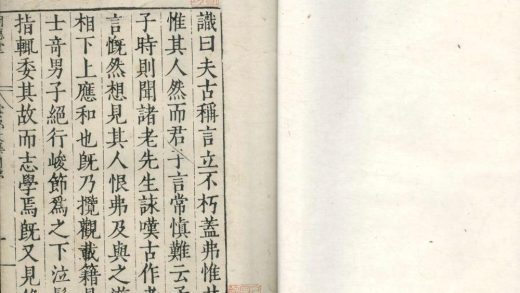 識曰夫古稱言立不朽蓋弗惟其
惟其人然而君子言常慎難云予
子時則聞諸老先生誄嘆古作者
言慨然想見其人恨弗及與之遊
相下上應和也旣乃攬觀載籍見
士奇男子絕行峻節爲之下泣髮
揩輒委其故而志學焉旣又見